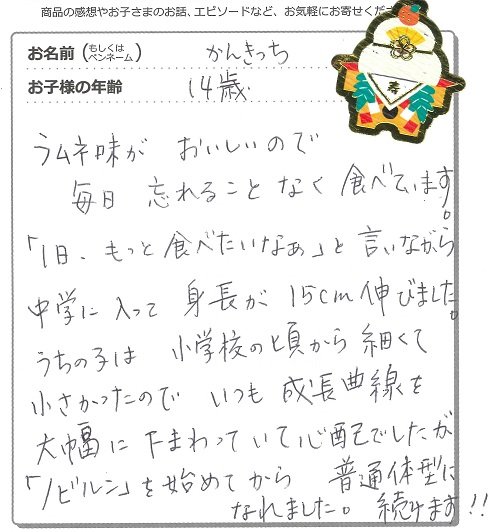 商品の感想やお子さまのお話、エピソードなど、お気軽にお寄せくだ
お名前（もしくはペンネーム） かんきっち
お子様の年齢 14歳
寿
ラムネ味が おいしいので
毎日 忘れること なく 食べています。
「1日、もっと食べたいなぁ」と 言いながら
中学に 入って 身長が 15cm 伸びました。
うちの子は 小学校の頃から 細くて
小さかったので いつも 成長曲線を
大幅に 下まわっていて心配でしたが
「ノビルン」を始めてから 普通体型に
なれました。 続けます!!